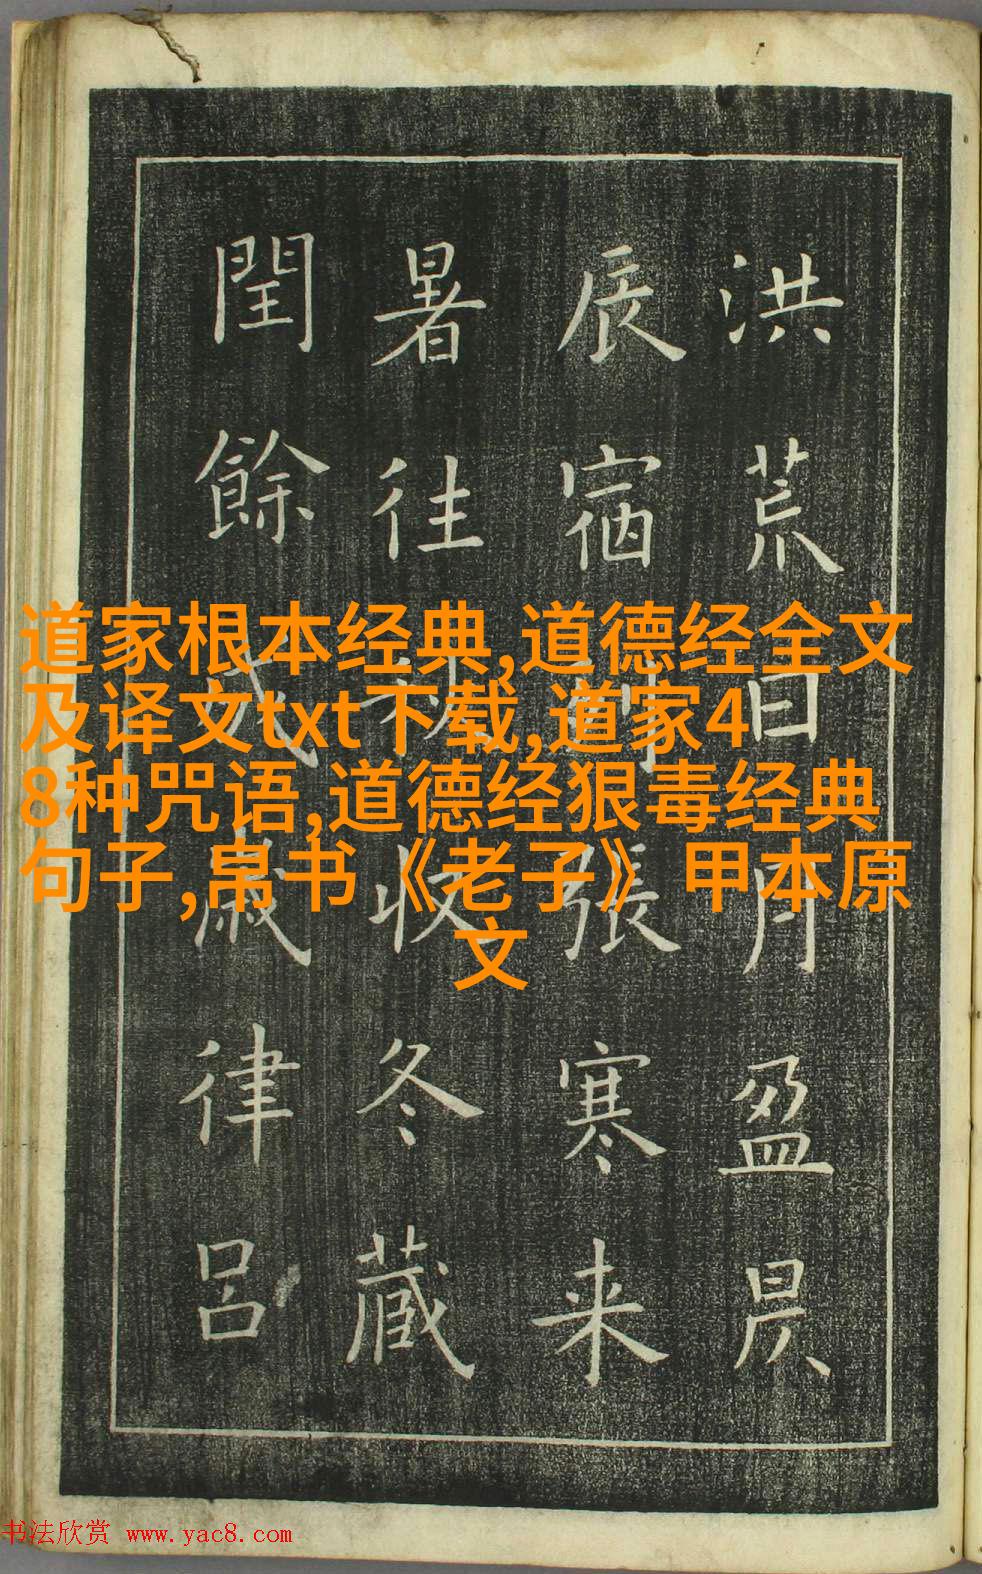 洪荒日月盈昃
辰宿列張寒来
暑徃秋收冬藏
閏餘成歲律呂
道家根本经典,道德经全文
及译文txt下载,道家4
8种咒语,道德经狠毒经典
句子,帛书《老子》甲本原
文
书法欣赏 www.yac8.com